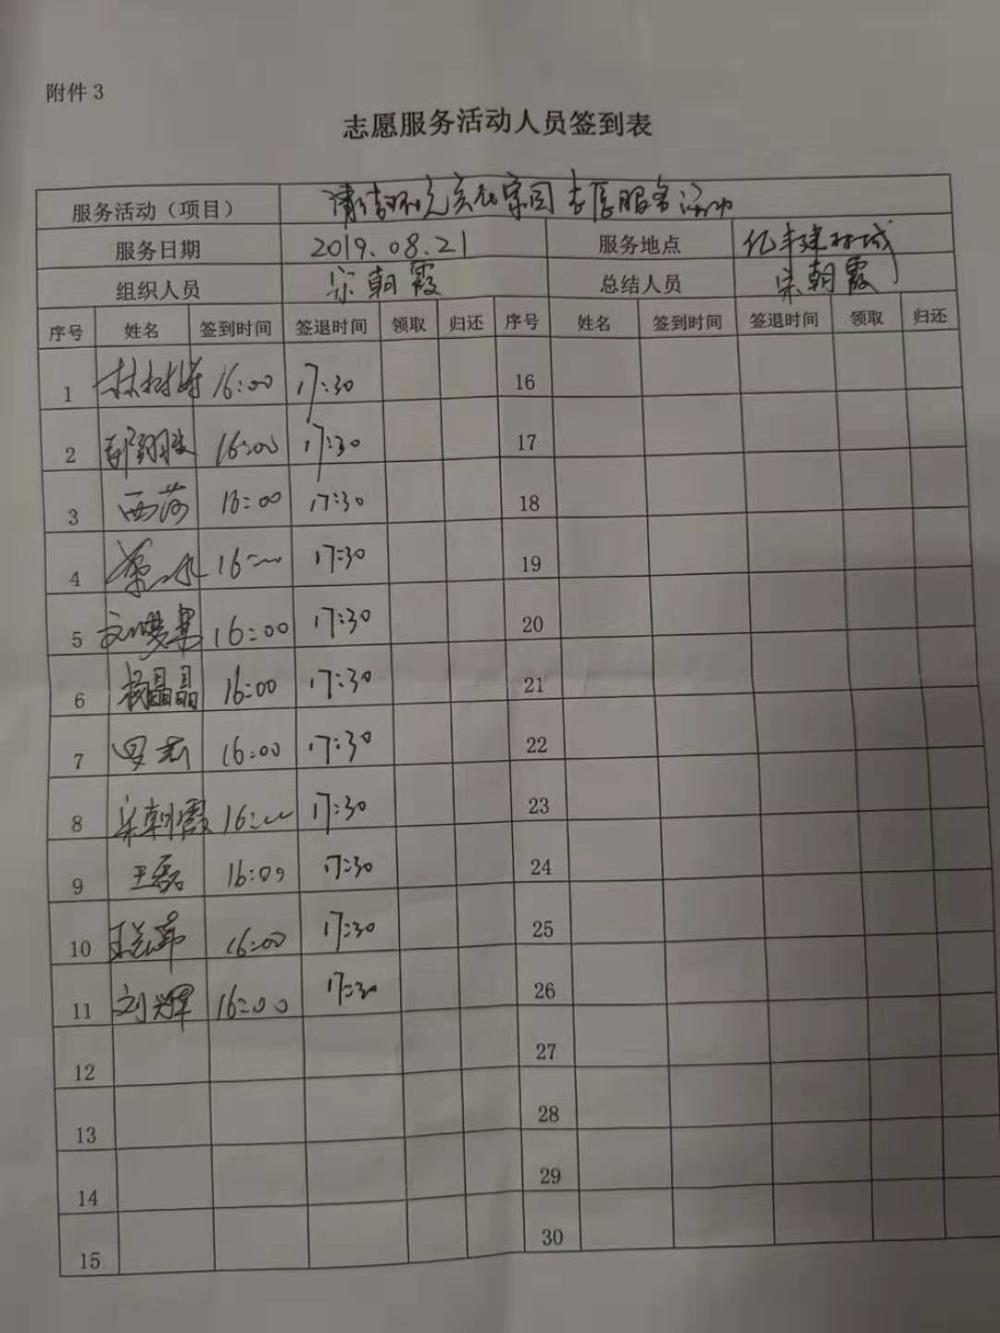 附件 3
志愿服务活动人员签到表
服务活动（项目） 清洁环境 家园 志愿服务活动
服务日期 2019.08.21 服务地点 亿丰建材城
组织人员 宋朝霞 总结人员 宋朝霞
序号 姓名 签到时间 签退时间 领取 归还 序号 姓名 签到时间 签退时间 领取 归还
1 林树涛 16:00 17:30 16
2 16:00 17:30 17
3 西莎 16:00 17:30 18
4 16:00 17:30 19
5 16:00 17:30 20
6 杨晶晶 16:00 17:30 21
7 16:00 17:30 22
8 宋朝霞 16:00 17:30 23
9 王磊 16:00 17:30 24
10 16:00 17:30 25
11 刘辉 16:00 17:30 26
12 27
13 28
14 29
15 30